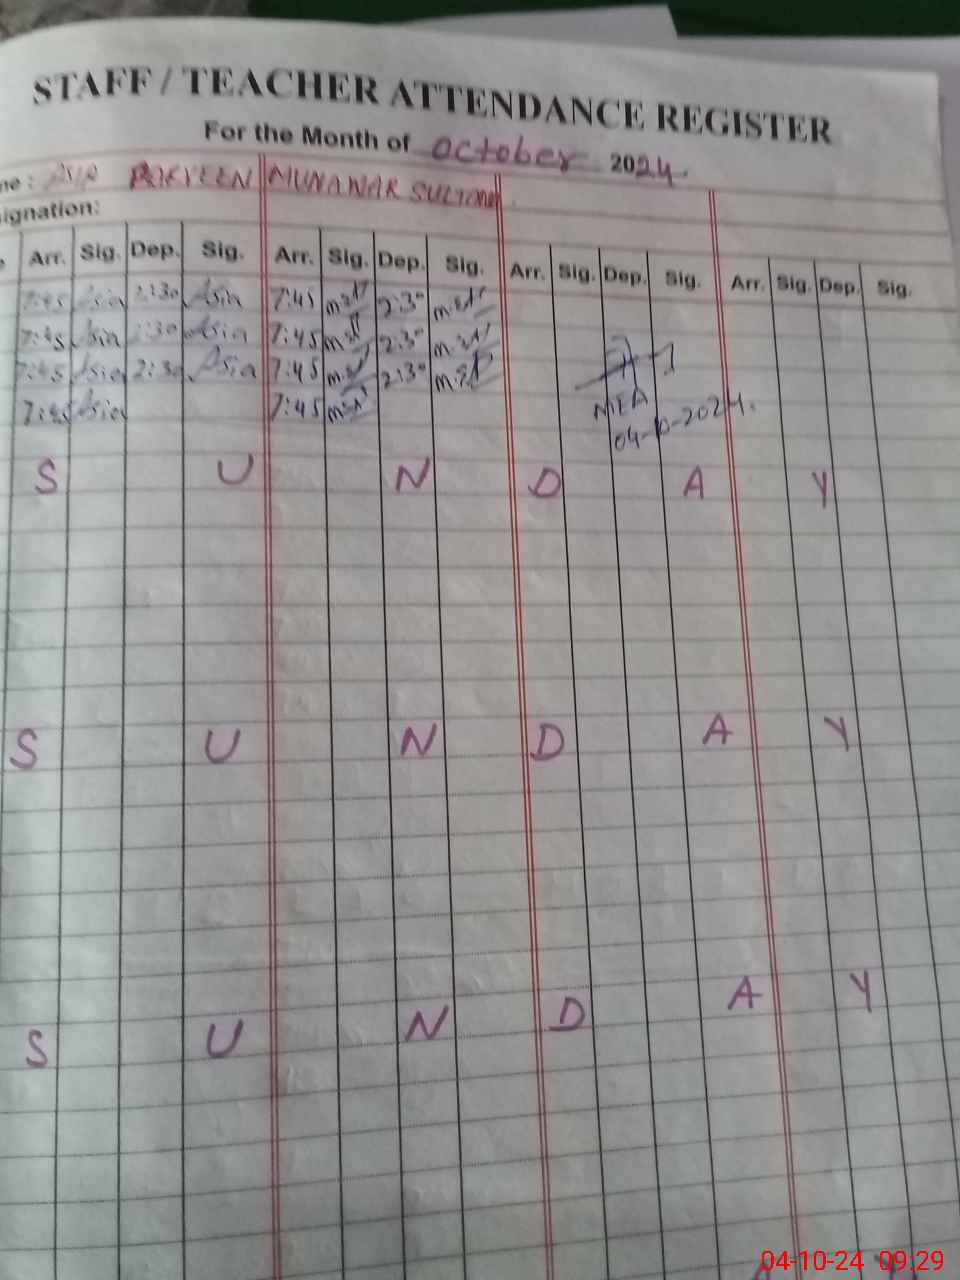 STAFF / TEACHER ATTENDANCE REGISTER
For the Month of October 2024.
ne : ASIA PARVEEN MUNAWAR SULTANA
signation:
Arr. Sig. Dep. Sig. Arr. Sig. Dep. Sig. Arr. Sig. Dep. Sig. Arr. Sig. Dep. Sig.
7:45 Asia 2:30 Asia 7:45 2:30
7:45 Asia 2:30 Asia 7:45 2:30
7:45 Asia 2:30 Asia 7:45 2:30
7:45 Asia 7:45 MEA
04-10-2024.
S U N D A Y
S U N D A Y
S U N D A Y
04-10-24 09.29